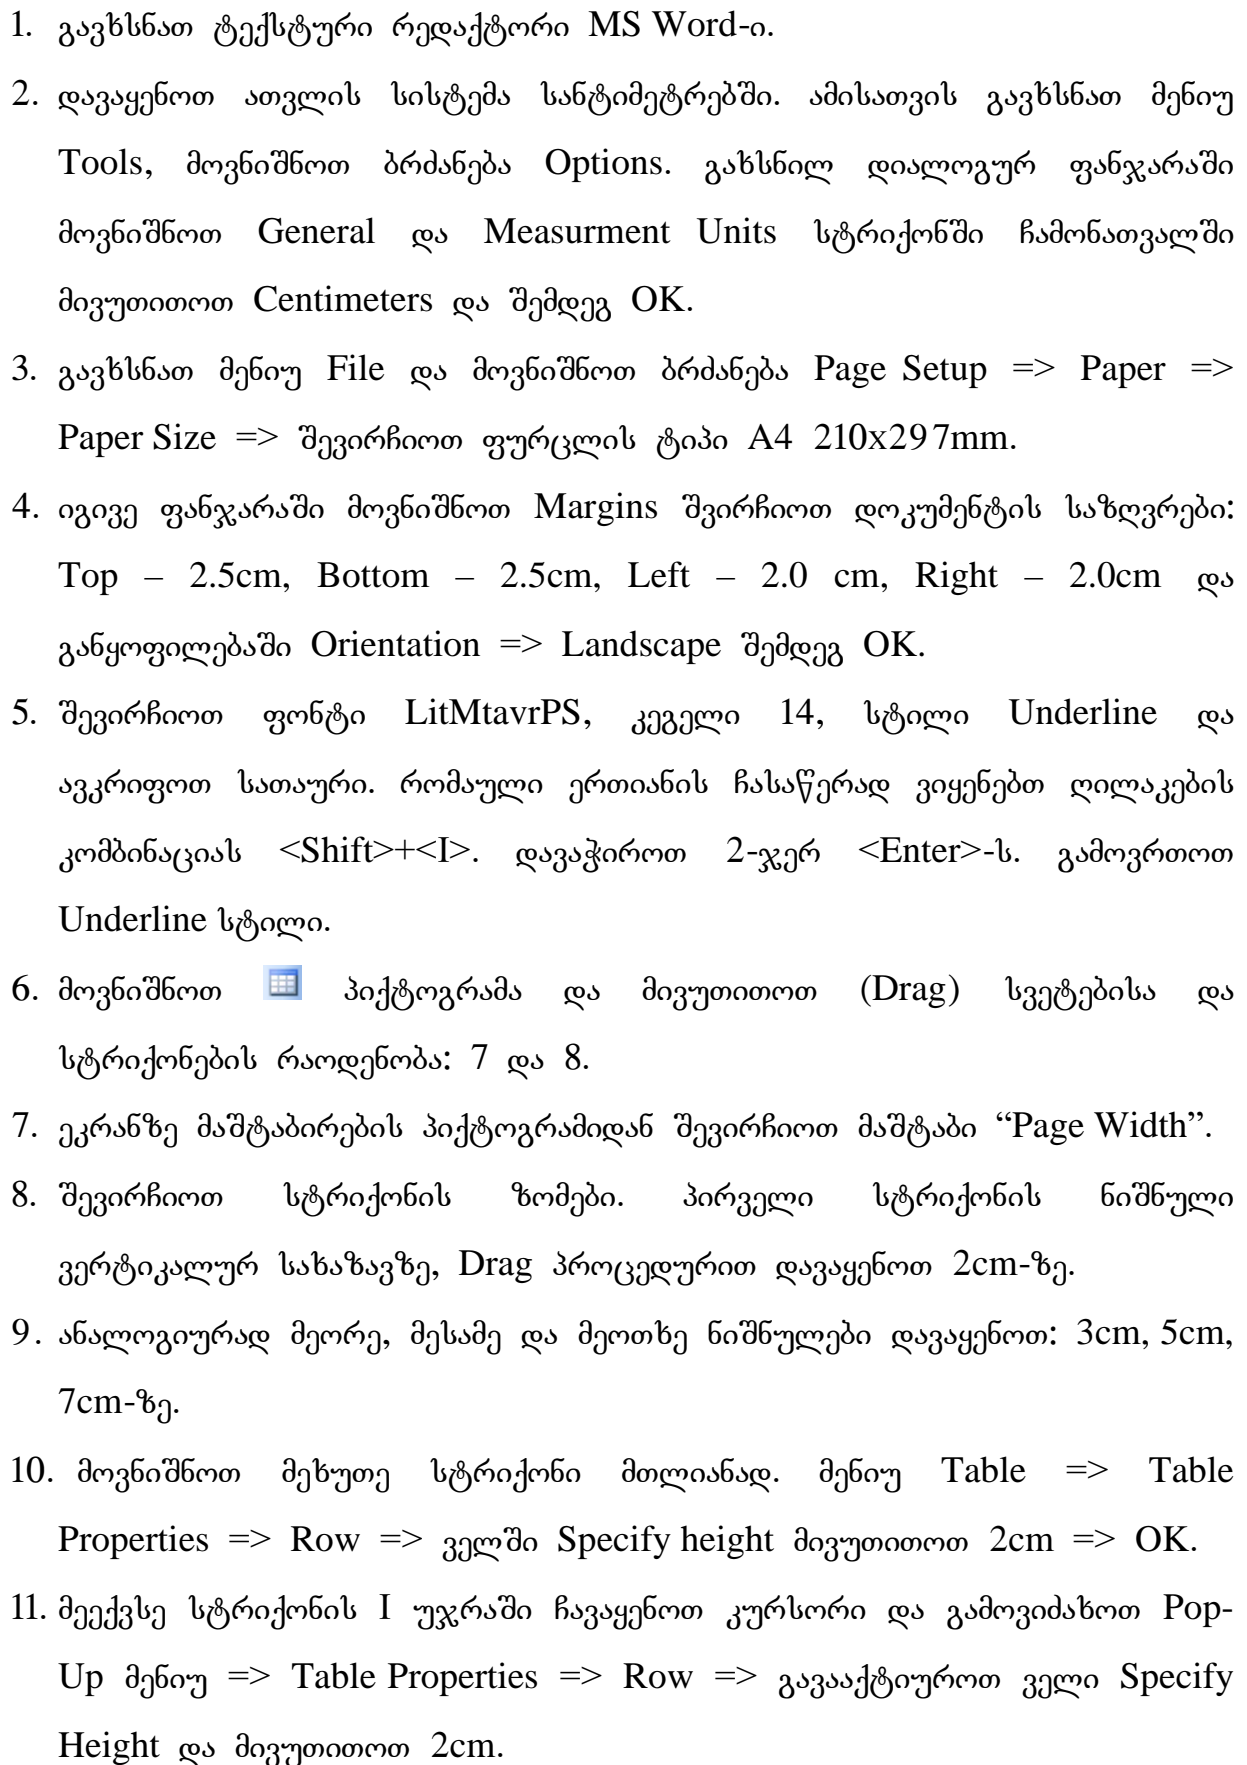 1. გავხსნათ ტექსტური რედაქტორი MS Word-ი.
2. დავაყენოთ ათვლის სისტემა სანტიმეტრებში. ამისათვის გავხსნათ მენიუ
Tools, მოვნიშნოთ ბრძანება Options. გახსნილ დიალოგურ ფანჯარაში
მოვნიშნოთ General და Measurment Units სტრიქონში ჩამონათვალში
მივუთითოთ Centimeters და შემდეგ OK.
3. გავხსნათ მენიუ File და მოვნიშნოთ ბრძანება Page Setup => Paper =>
Paper Size => შევირჩიოთ ფურცლის ტიპი A4 210x297mm.
4. იგივე ფანჯარაში მოვნიშნოთ Margins შვირჩიოთ დოკუმენტის საზღვრები:
Top – 2.5cm, Bottom – 2.5cm, Left – 2.0 cm, Right – 2.0cm და
განყოფილებაში Orientation => Landscape შემდეგ OK.
5. შევირჩიოთ ფონტი LitMtavrPS, კეგელი 14, სტილი Underline და
ავკრიფოთ სათაური. რომაული ერთიანის ჩასაწერად ვიყენებთ ღილაკების
კომბინაციას <Shift>+<I>. დავაჭიროთ 2-ჯერ <Enter>-ს. გამოვრთოთ
Underline სტილი.
6. მოვნიშნოთ პიქტოგრამა და მივუთითოთ (Drag) სვეტებისა და
სტრიქონების რაოდენობა: 7 და 8.
7. ეკრანზე მაშტაბირების პიქტოგრამიდან შევირჩიოთ მაშტაბი “Page Width”.
8. შევირჩიოთ სტრიქონის ზომები. პირველი სტრიქონის ნიშნული
ვერტიკალურ სახაზავზე, Drag პროცედურით დავაყენოთ 2cm-ზე.
9. ანალოგიურად მეორე, მესამე და მეოთხე ნიშნულები დავაყენოთ: 3cm, 5cm,
7cm-ზე.
10. მოვნიშნოთ მეხუთე სტრიქონი მთლიანად. მენიუ Table => Table
Properties => Row => ველში Specify height მივუთითოთ 2cm => OK.
11. მეექვსე სტრიქონის I უჯრაში ჩავაყენოთ კურსორი და გამოვიძახოთ Pop-
Up მენიუ => Table Properties => Row => გავააქტიუროთ ველი Specify
Height და მივუთითოთ 2cm.